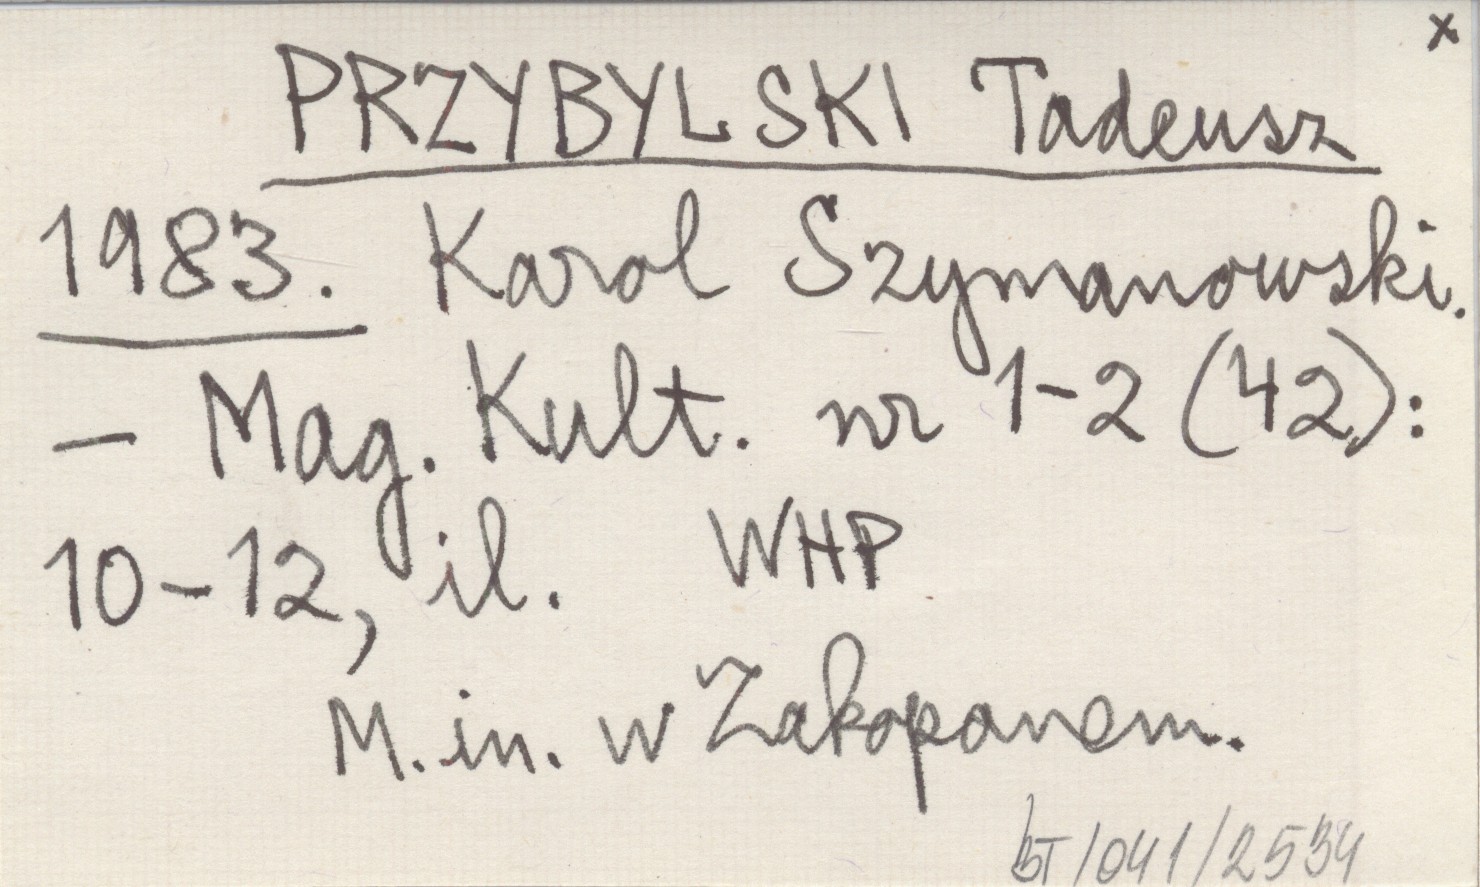 x
PRZYBYLSKI Tadeusz
1983. Karol Szymanowski.
– Mag. Kult. nr 1–2 (42):
10–12, il. WHP
M.in. w Zakopanem.
BT/041/2534